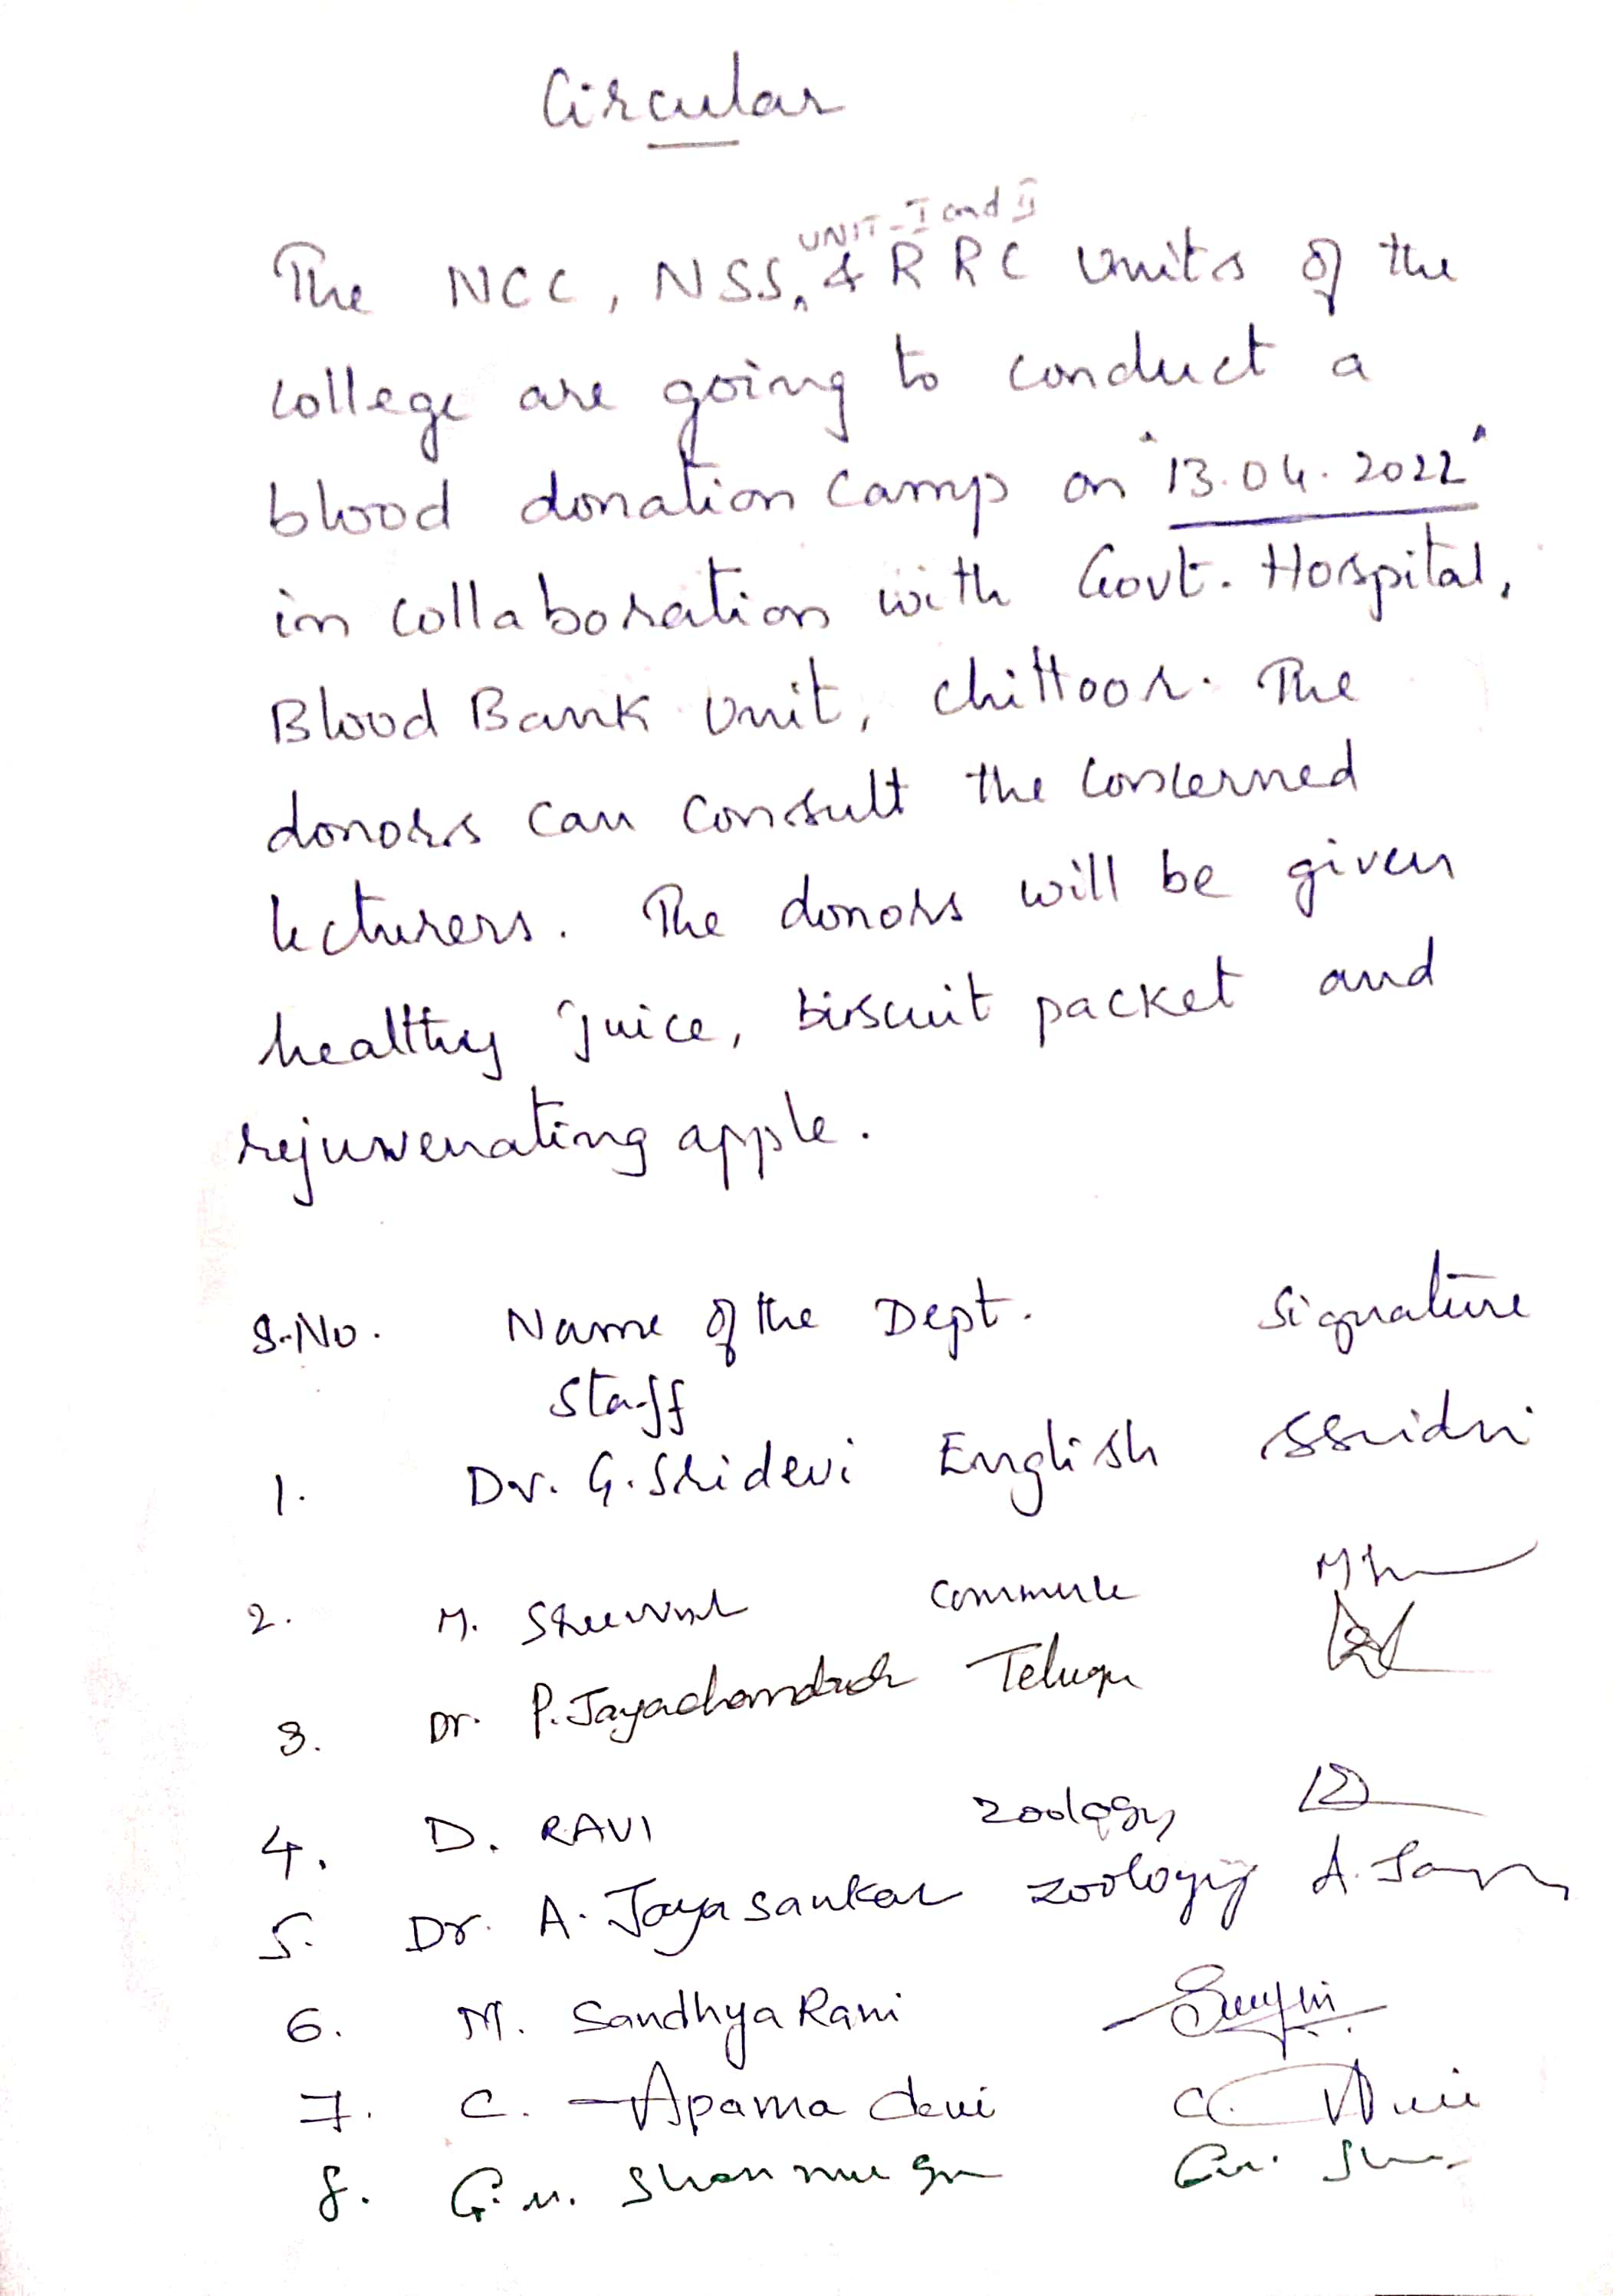 Circular
UNIT-I and II
The NCC, NSS, & RRC units of the
college are going to conduct a
blood donation camp on "13.04.2022"
in collaboration with Govt. Hospital,
Blood Bank Unit, Chittoor. The
donors can consult the concerned
lecturers. The donors will be given
healthy juice, biscuit packet and
rejuvenating apple.
S.No. Name of the Dept. Signature
Staff
1. Dr. G. Sridevi English
2. M. Commerce
3. Dr. P. Jayachandra Telugu
4. D. RAVI Zoology
5. Dr. A. Jayasankar Zoology
6. M. Sandhya Rani
7. C. Aparna devi
8. G. M.